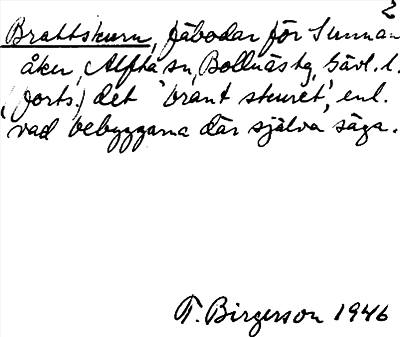 2
Brattskurn, fäbodar för Sunnan
åker, Alfta sn, Bollnäs tg, Gävl. l.
(forts.) det 'brant skuret', enl.
vad bebyggarna där själva säga.
T. Birgerson 1946